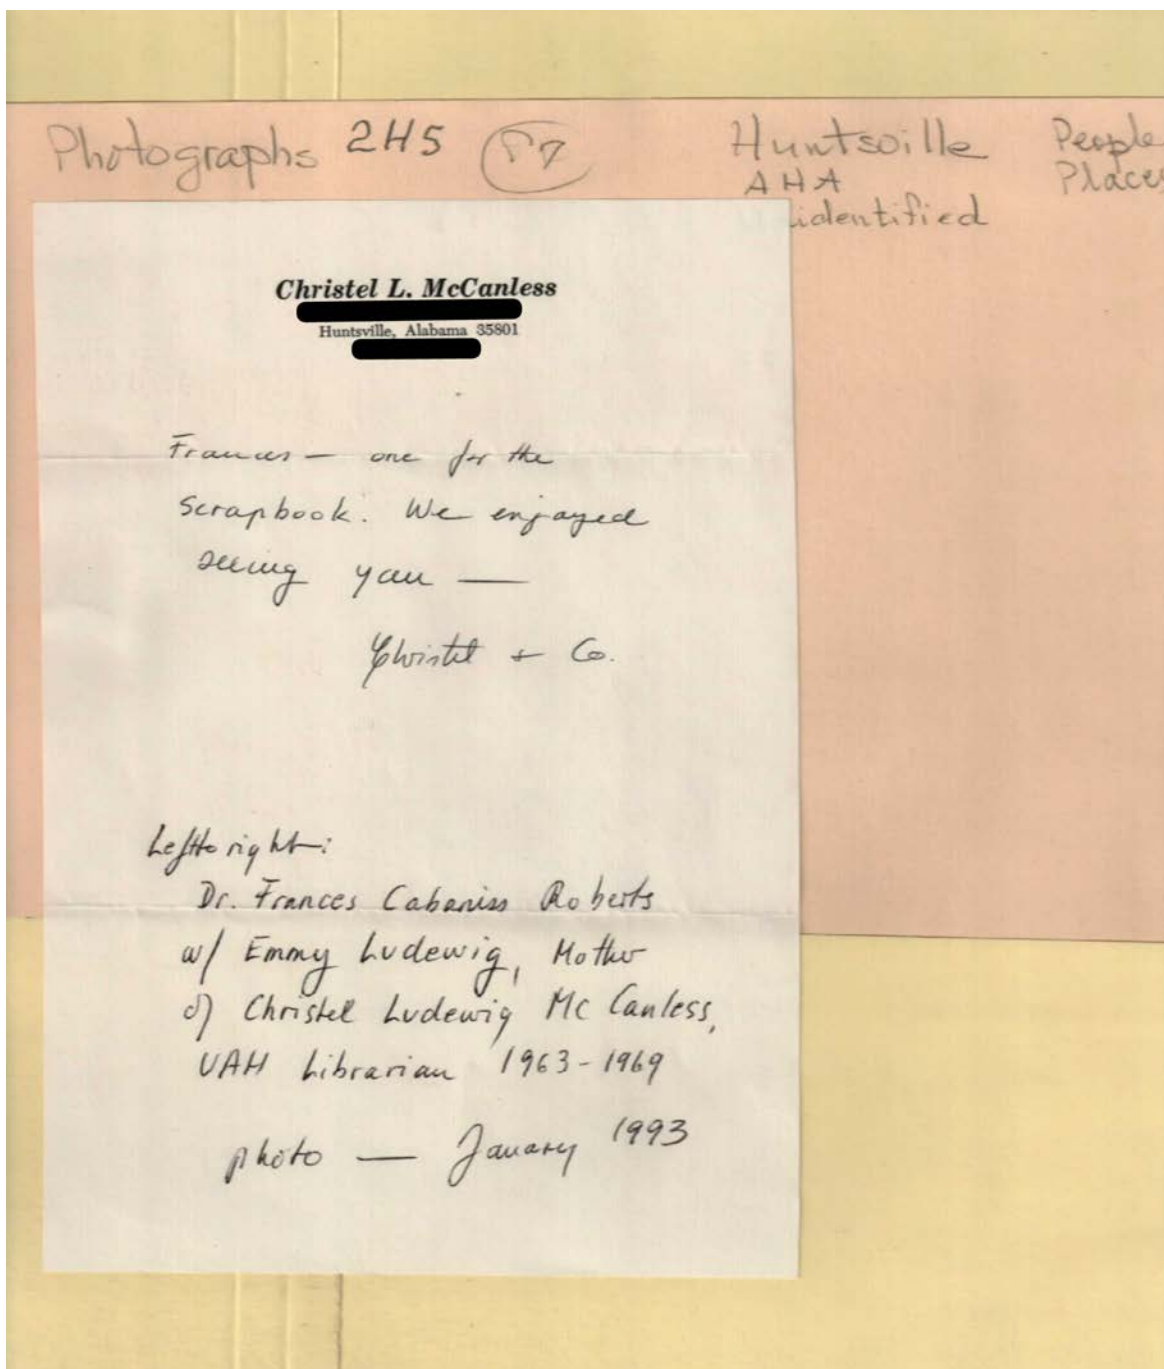 Photographs 2H5
Huntsville People
AHA Places
identified
Christel L. McCanless
Huntsville, Alabama 35801
Frances — one for the
scrapbook. We enjoyed
seeing you —
Christel + Co.
Left to right:
Dr. Frances Cabaniss Roberts
w/ Emmy Ludewig, Mother
of Christel Ludewig Mc Canless,
UAH Librarian 1963-1969
photo — January 1993